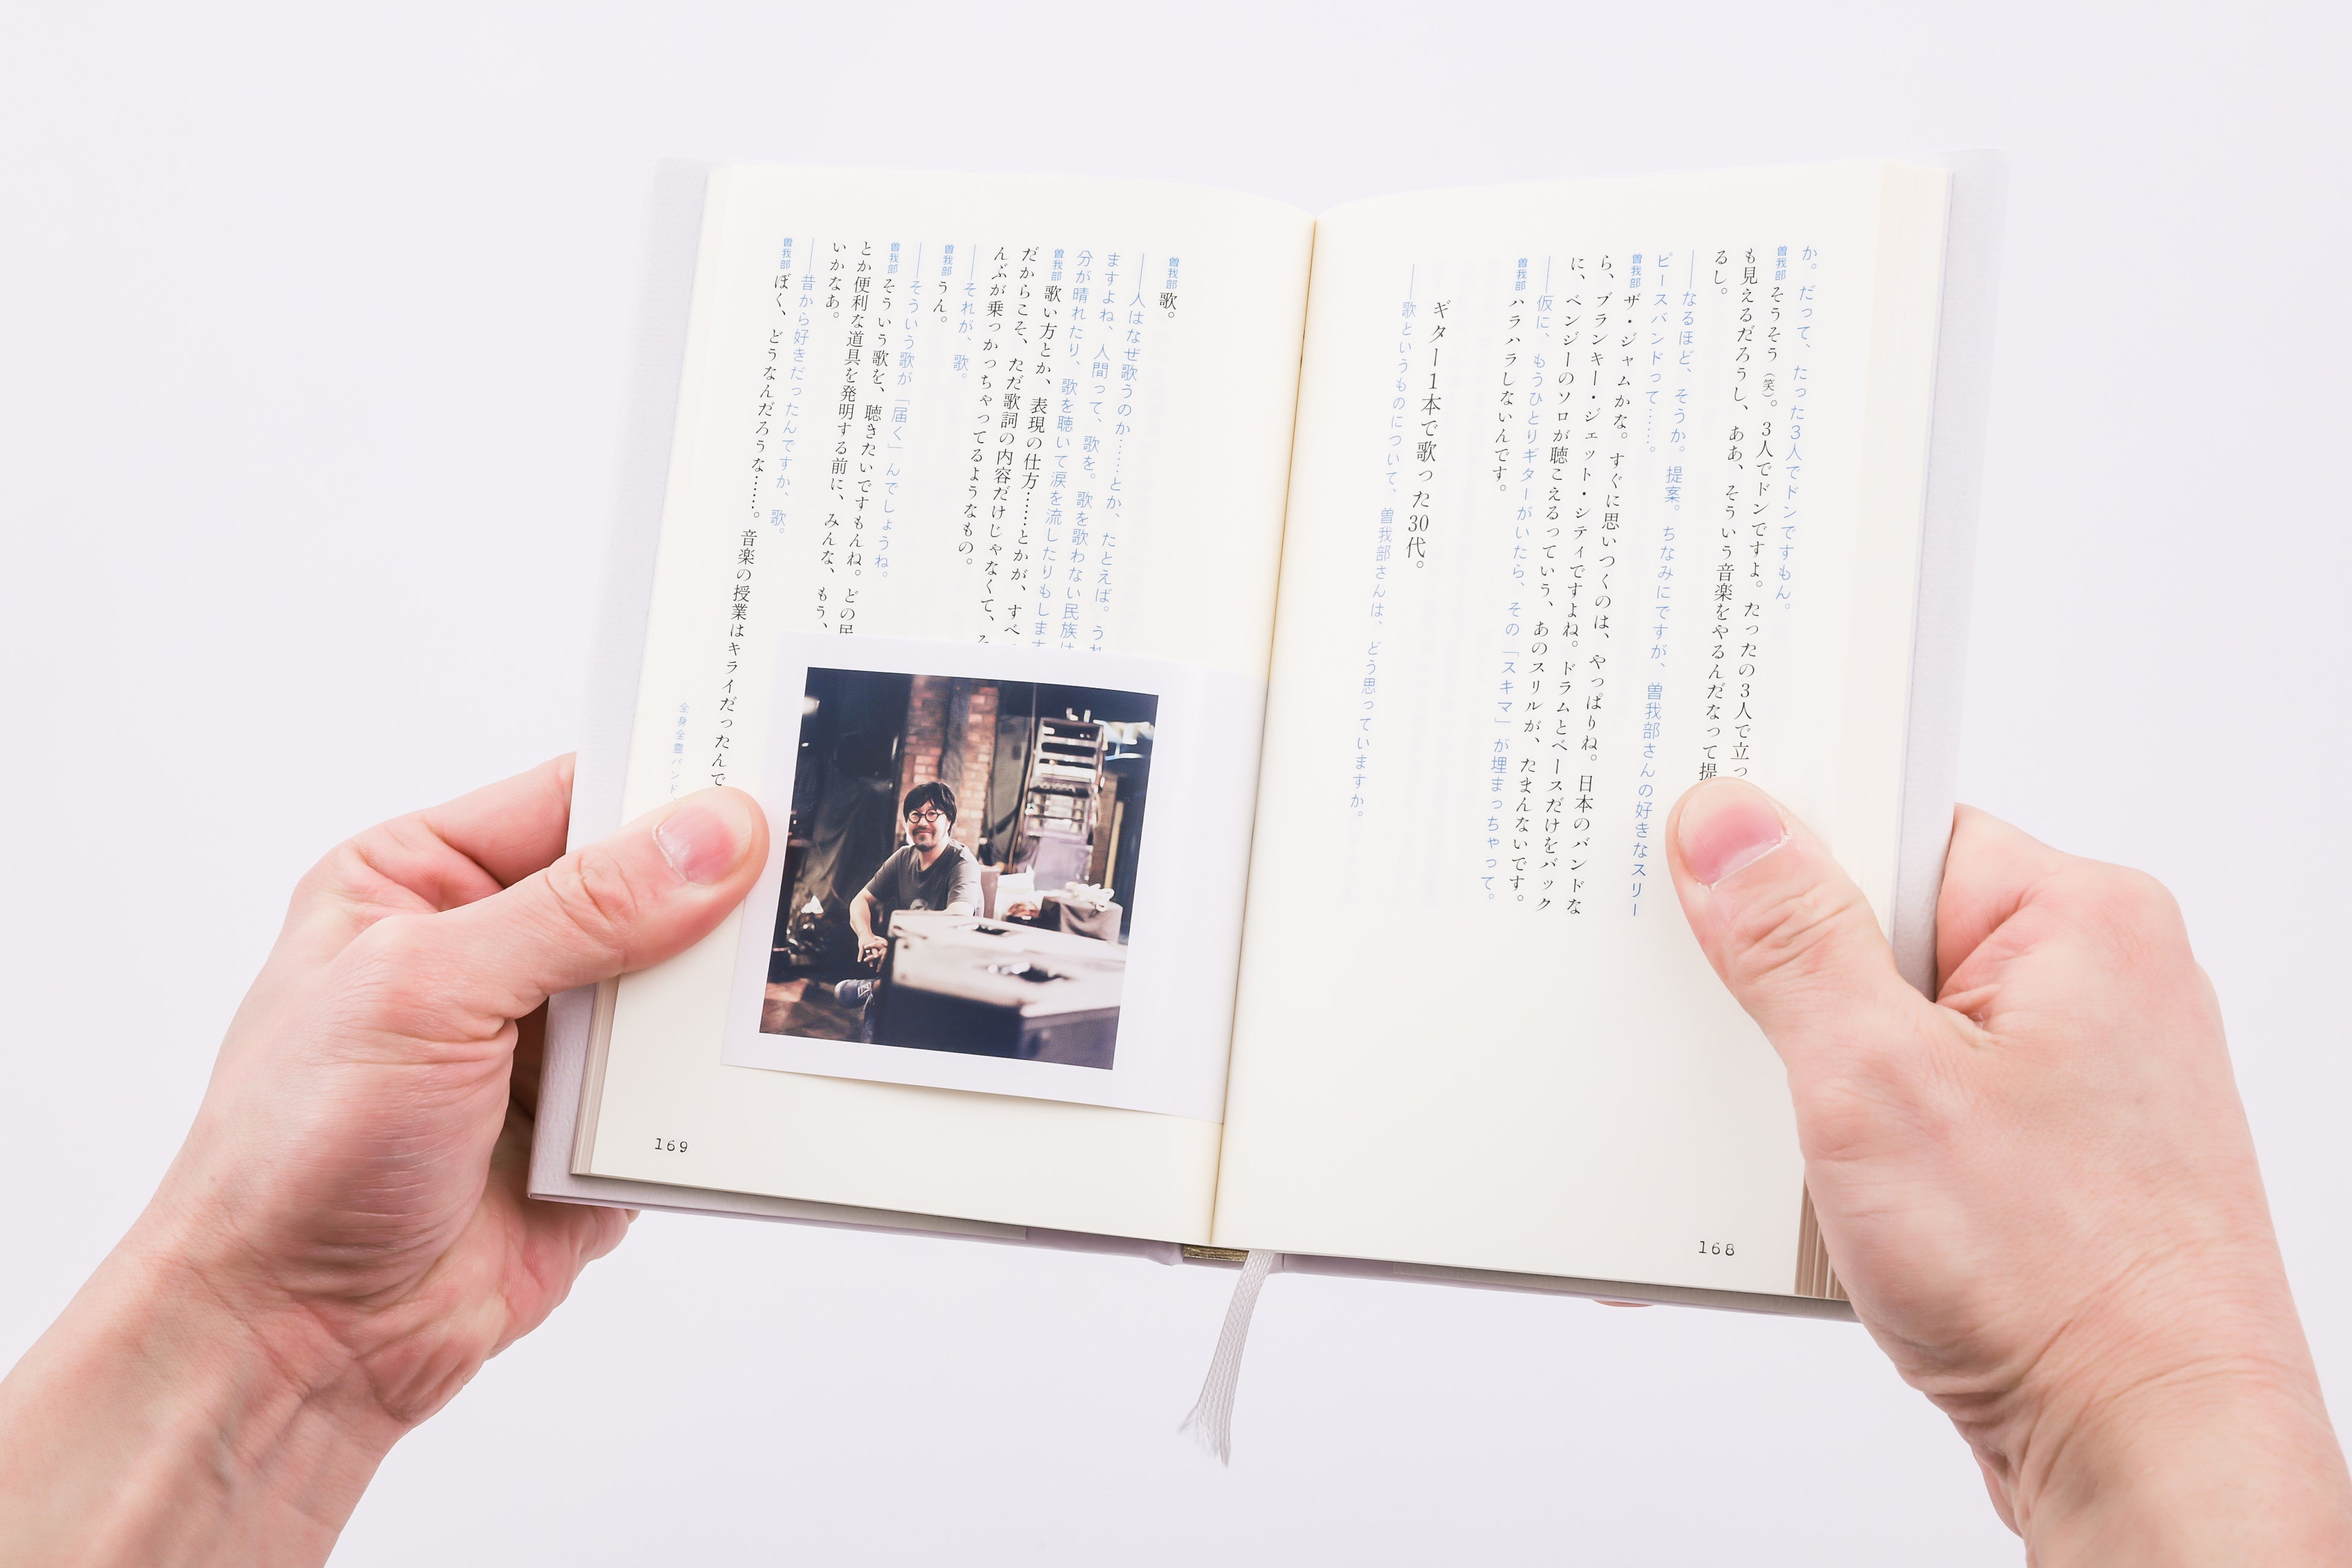 か。だって、たった3人でドンですもん。
曽我部 そうそう(笑)。3人でドンですよ。たったの3人で立っ
も見えるだろうし、ああ、そういう音楽をやるんだなって提
るし。
――なるほど、そうか。提案。ちなみにですが、曽我部さんの好きなスリー
ピースバンドって……。
曽我部 ザ・ジャムかな。すぐに思いつくのは、やっぱりね。日本のバンドな
ら、ブランキー・ジェット・シティですよね。ドラムとベースだけをバック
に、ベンジーのソロが聴こえるっていう、あのスリルが、たまんないです。
――仮に、もうひとりギターがいたら、その「スキマ」が埋まっちゃって。
曽我部 ハラハラしないんです。
ギター1本で歌った30代。
――歌というものについて、曽我部さんは、どう思っていますか。
168
曽我部 歌。
――人はなぜ歌うのか……とか、たとえば。うれ
ますよね、人間って、歌を。歌を歌わない民族は
分が晴れたり、歌を聴いて涙を流したりもします
曽我部 歌い方とか、表現の仕方……とかが、すべ
だからこそ、ただ歌詞の内容だけじゃなくて、そ
んぶが乗っかっちゃってるようなもの。
――それが、歌。
曽我部 うん。
――そういう歌が「届く」んでしょうね。
曽我部 そういう歌を、聴きたいですもんね。どの民
とか便利な道具を発明する前に、みんな、もう、
いかなあ。
――昔から好きだったんですか、歌。
曽我部 ぼく、どうなんだろうな……。音楽の授業はキライだったんで
全身全霊バンド
169